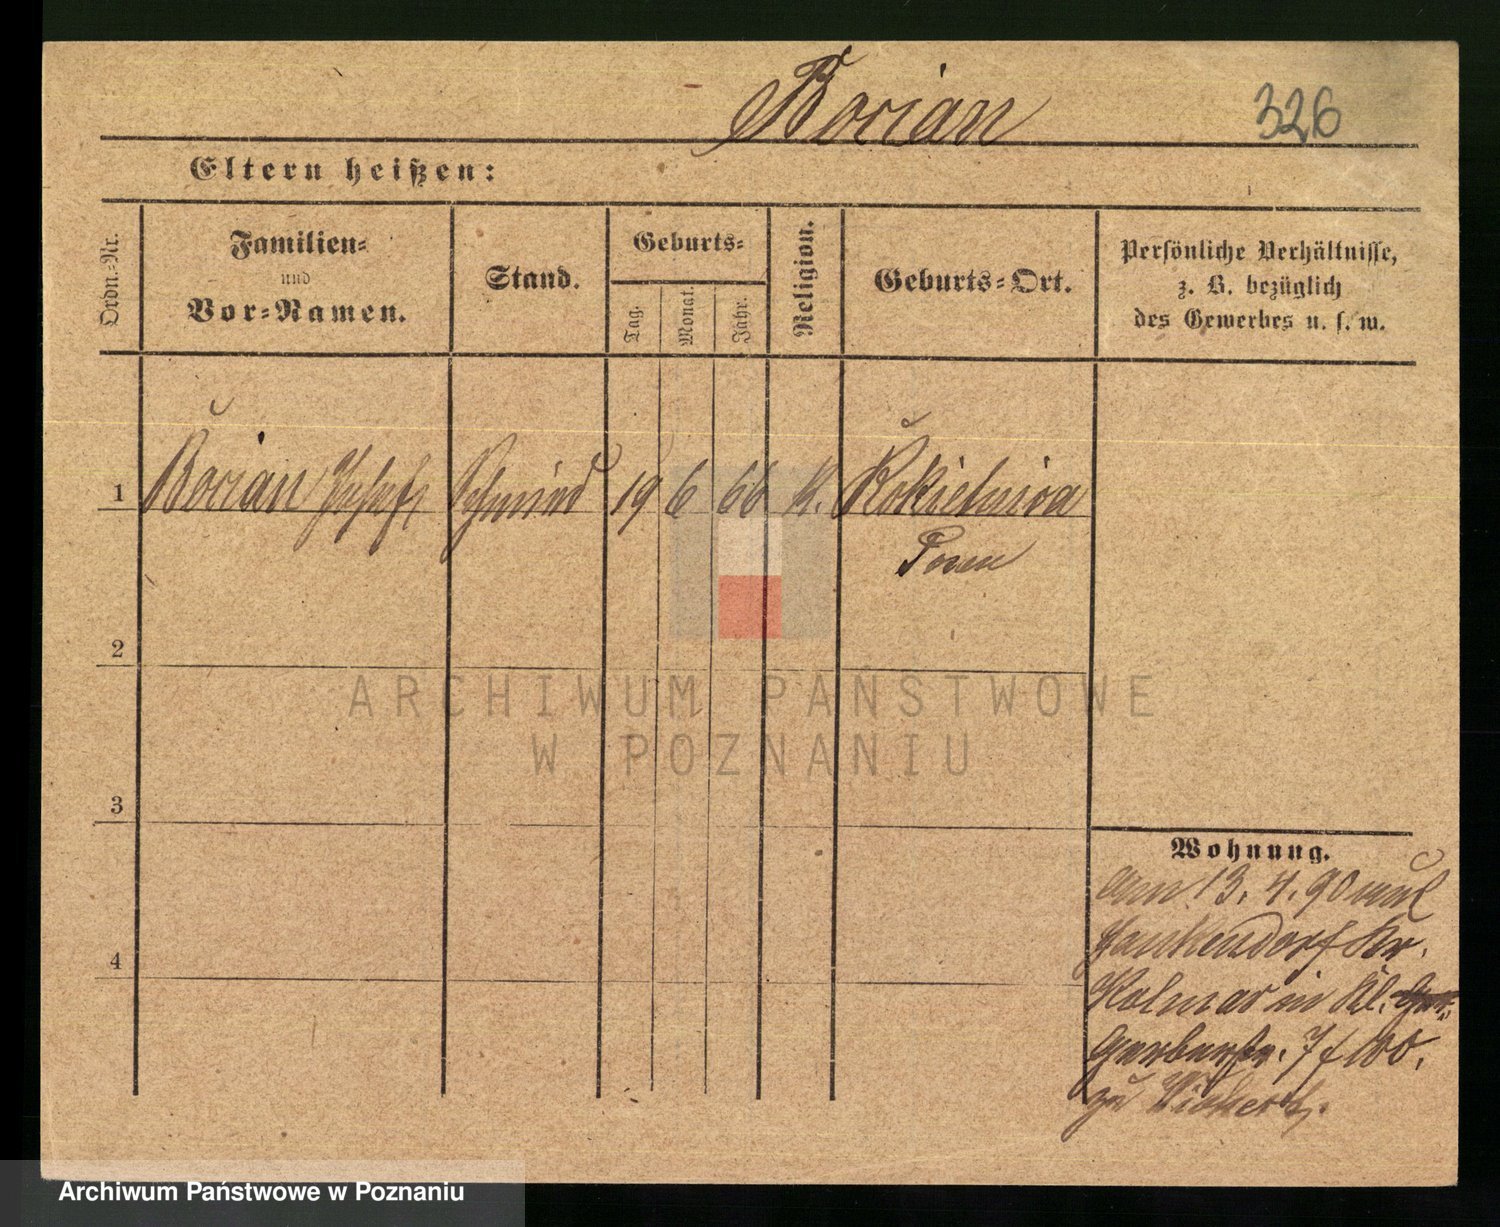 Bocian
326
Eltern heißen:
Ordn.-Nr.
Familien-
und
Vor-Namen.
Stand.
Geburts-
Tag.
Monat.
Jahr.
Religion.
Geburts-Ort.
Persönliche Verhältnisse,
z. B. bezüglich
des Gewerbes u. s. w.
1 Bocian Josef Schmied 19 6 66 k. Rokietnica
Posen
2
3
4
Wohnung.
am 13. 4. 90 aus
Jankendorf Kr.
Kolmar in Kl.
Gerberstr. 7
zu
ARCHIWUM PAŃSTWOWE
W POZNANIU
Archiwum Państwowe w Poznaniu